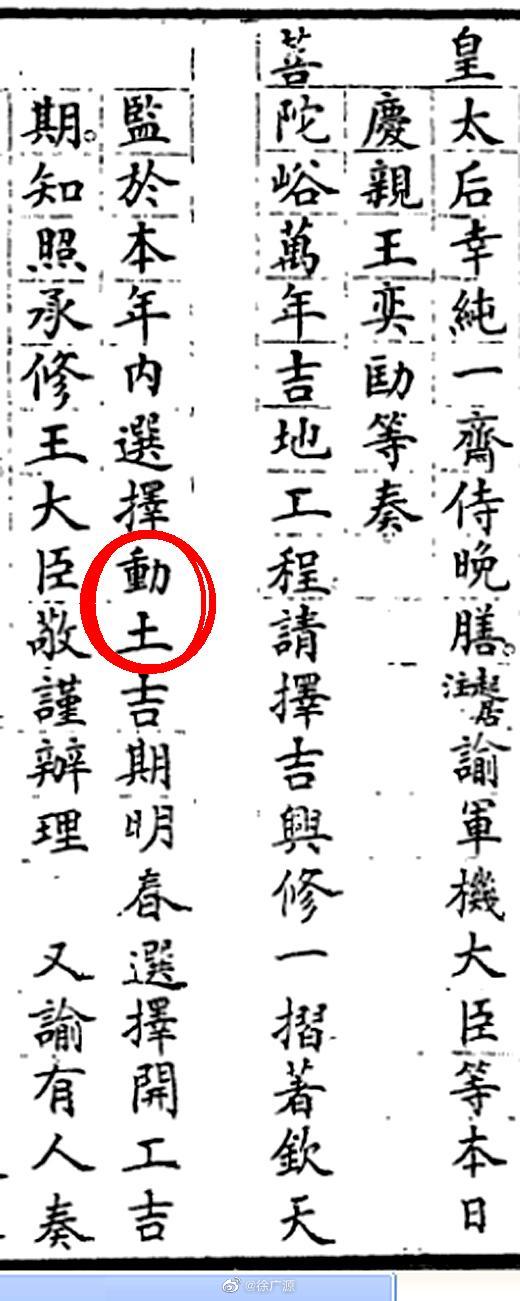 皇太后幸純一齋侍晚膳。起居注諭軍機大臣等本日
慶親王奕劻等奏
菩陀峪萬年吉地工程請擇吉興修一摺著欽天
監於本年內選擇動土吉期明春選擇開工吉
期。知照承修王大臣敬謹辦理 又諭有人奏
@徐广源